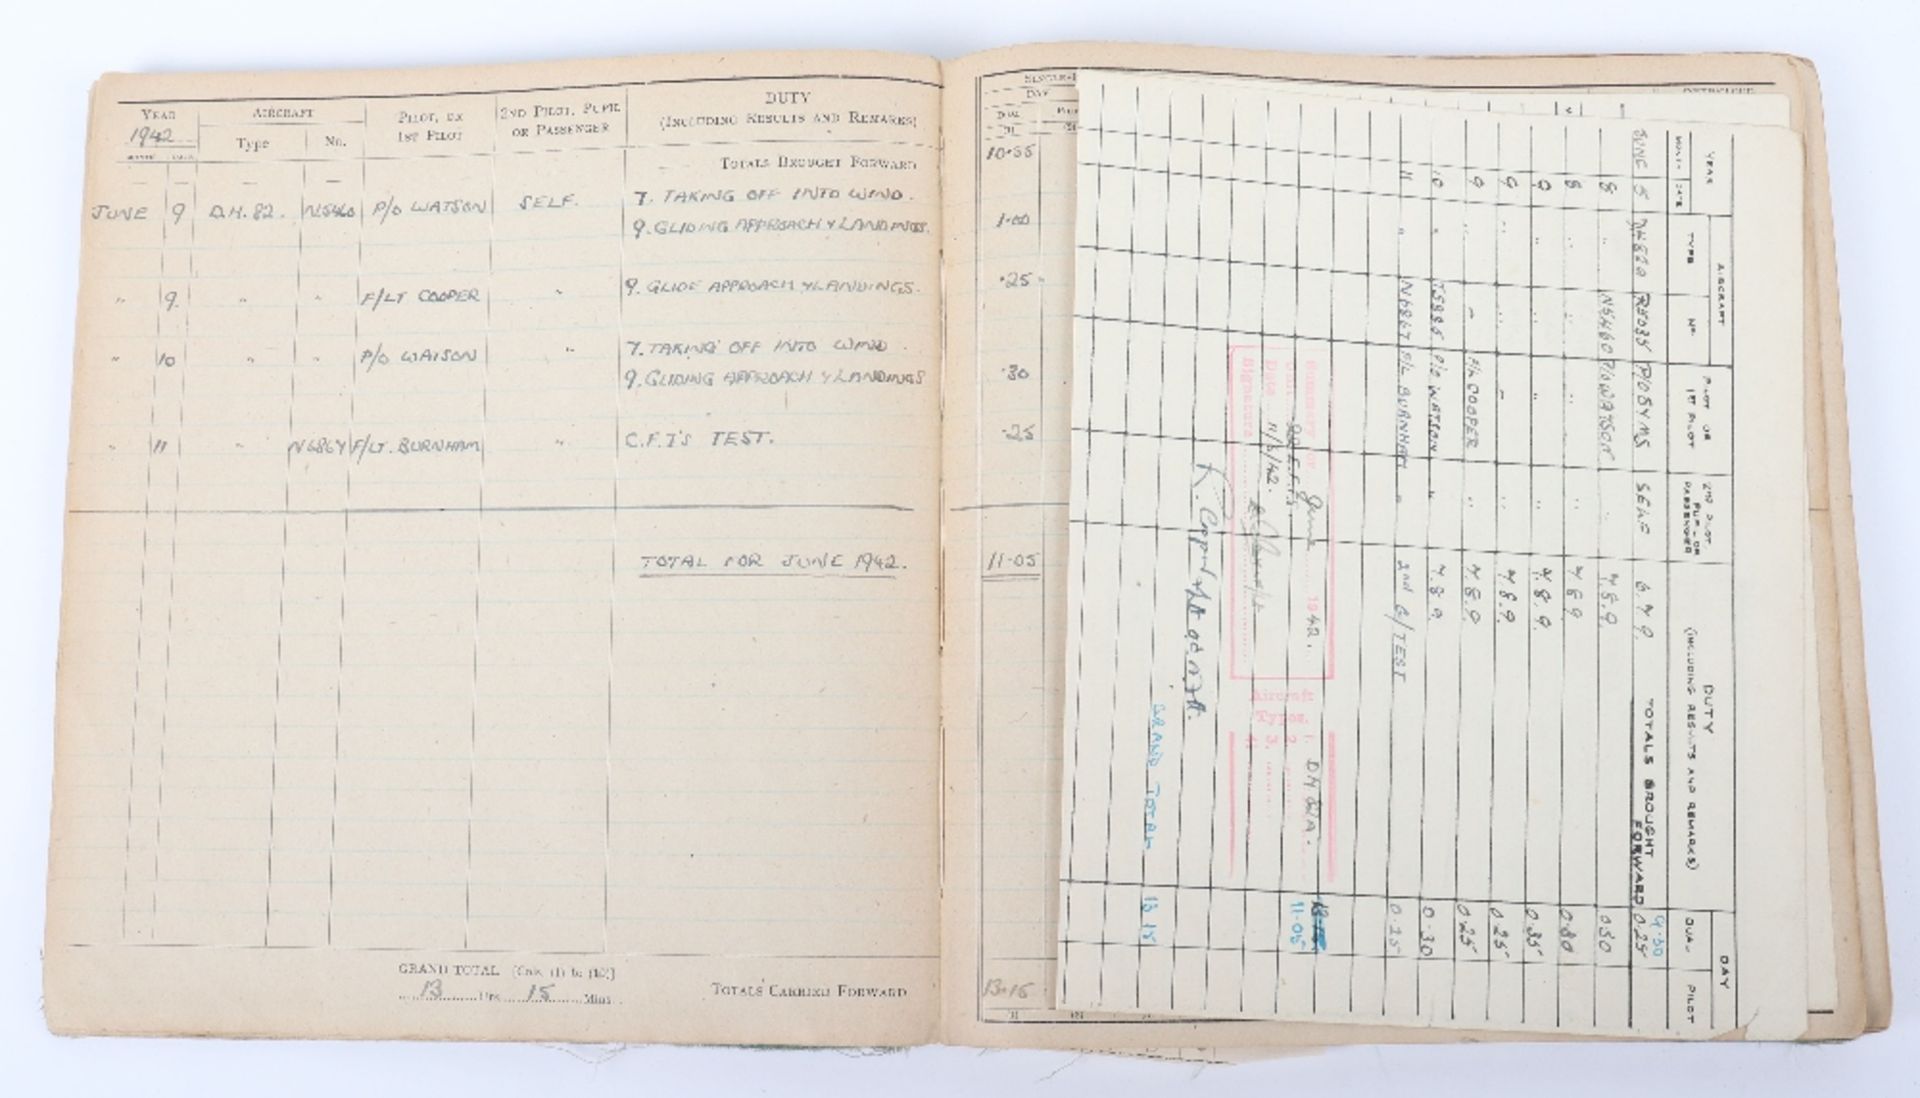 YEAR AIRCRAFT PILOT, OR 1ST PILOT 2ND PILOT, PUPIL OR PASSENGER DUTY (INCLUDING RESULTS AND REMARKS)
1942 Type No.
TOTALS BROUGHT FORWARD 10.55
JUNE 9 D.H.82. N5460 P/O WATSON SELF. 7. TAKING OFF INTO WIND. 1.00
9. GLIDING APPROACH & LANDINGS.
" 9. " " F/LT COOPER " 9. GLIDE APPROACH & LANDINGS. .25
" 10 " " P/O WATSON " 7. TAKING OFF INTO WIND. .30
9. GLIDING APPROACH & LANDINGS
" 11 " F/LT. BURNHAM " C.F.I'S TEST. .25
TOTAL FOR JUNE 1942. 11.05
GRAND TOTAL [Cols. (1) to (10)]
13 Hrs 15 Mins
TOTALS CARRIED FORWARD 13.15
DAY
DUAL
(1)
YEAR AIRCRAFT PILOT OR 1ST PILOT 2ND PILOT PUPIL OR PASSENGER DUTY (INCLUDING RESULTS AND REMARKS) DAY
MONTH DATE TYPE No. DUAL PILOT
TOTALS BROUGHT FORWARD 9.50
JUNE 5 SELF 6.7.9 0.25
8 " N5460 P/O WATSON " 7.8.9. 0.30
8 " " " " 7.8.9 0.30
9 " " " " 7.8.9. 0.35
9 " " " " 7.8.9. 0.25
9 " " F/L COOPER " 7.8.9. 0.25
10 " P/O WATSON " 7.8.9. 0.30
11 " N6867 F/L BURNHAM " 2nd G/TEST 0.25
Summary for June 1942. Aircraft Types. 1. DH82A.
Unit 2.
Date 11/6/42. 3.
Signature 4.
11-05
GRAND TOTAL 13 15